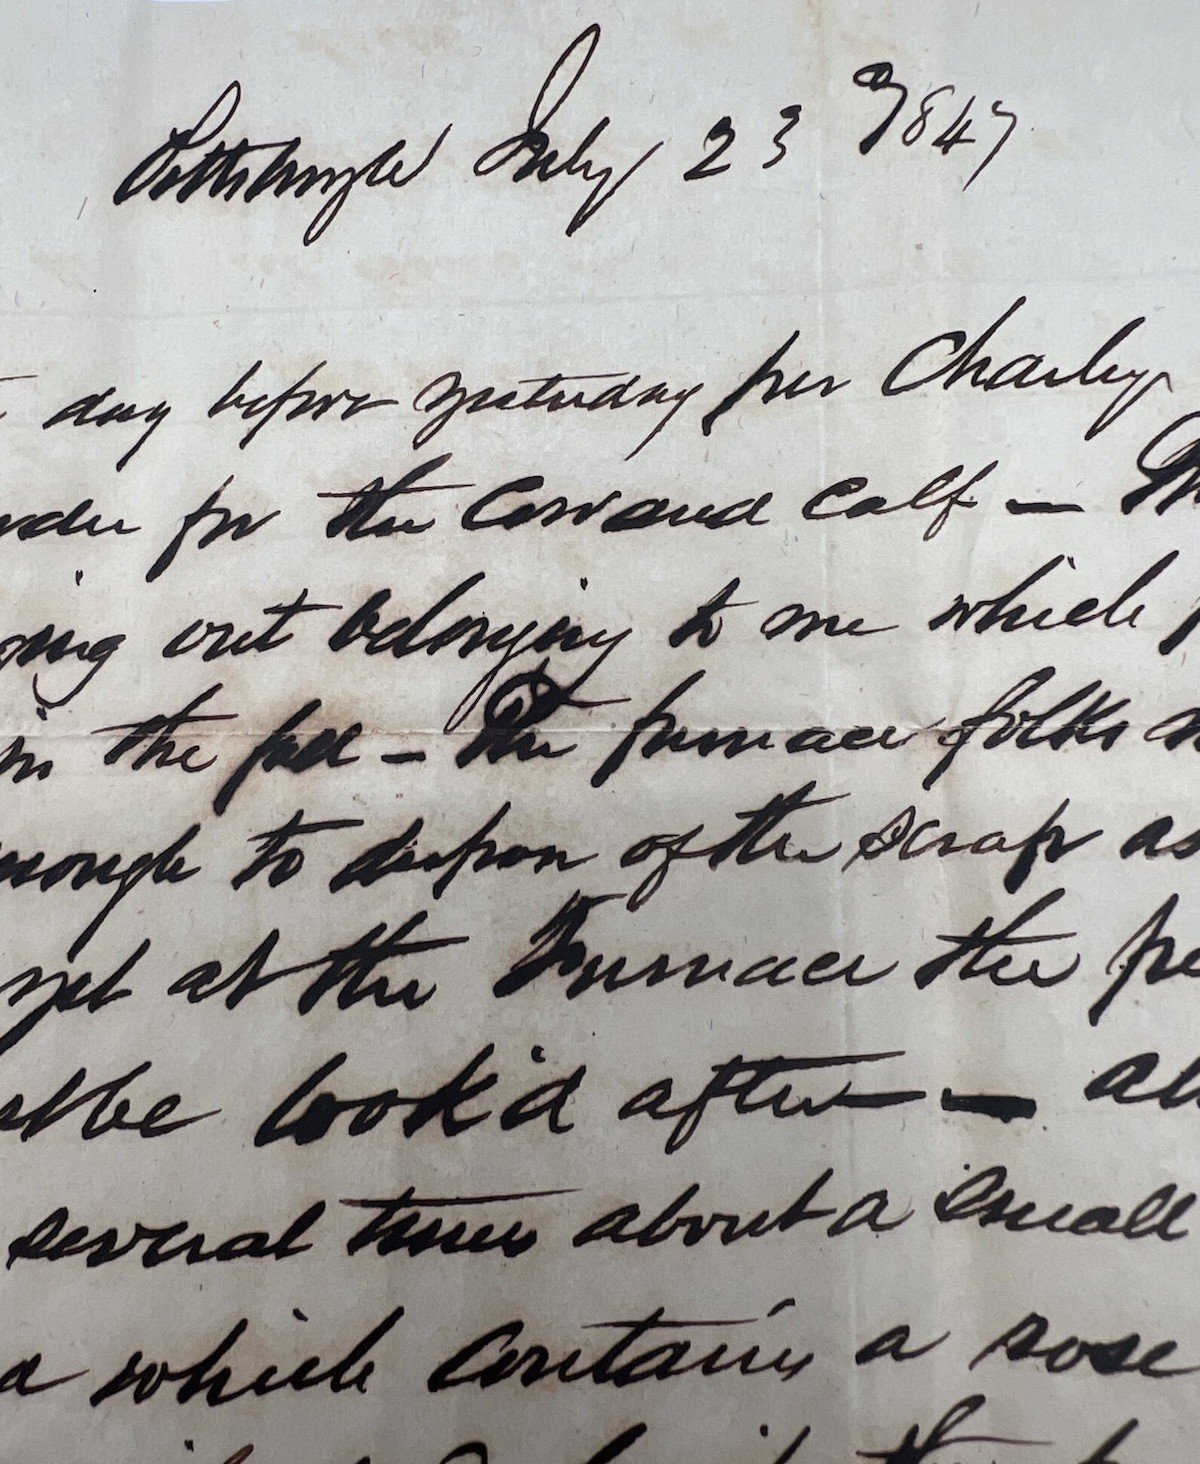 Pittsburgh July 23 1847
day before yesterday per Charley
for the Cow and Calf —
out belonging to me which
in the fall — The furnace folks
enough to of the scrap as
yet at the Furnace the
be look'd after — —
several times about a small
a which contains a rose